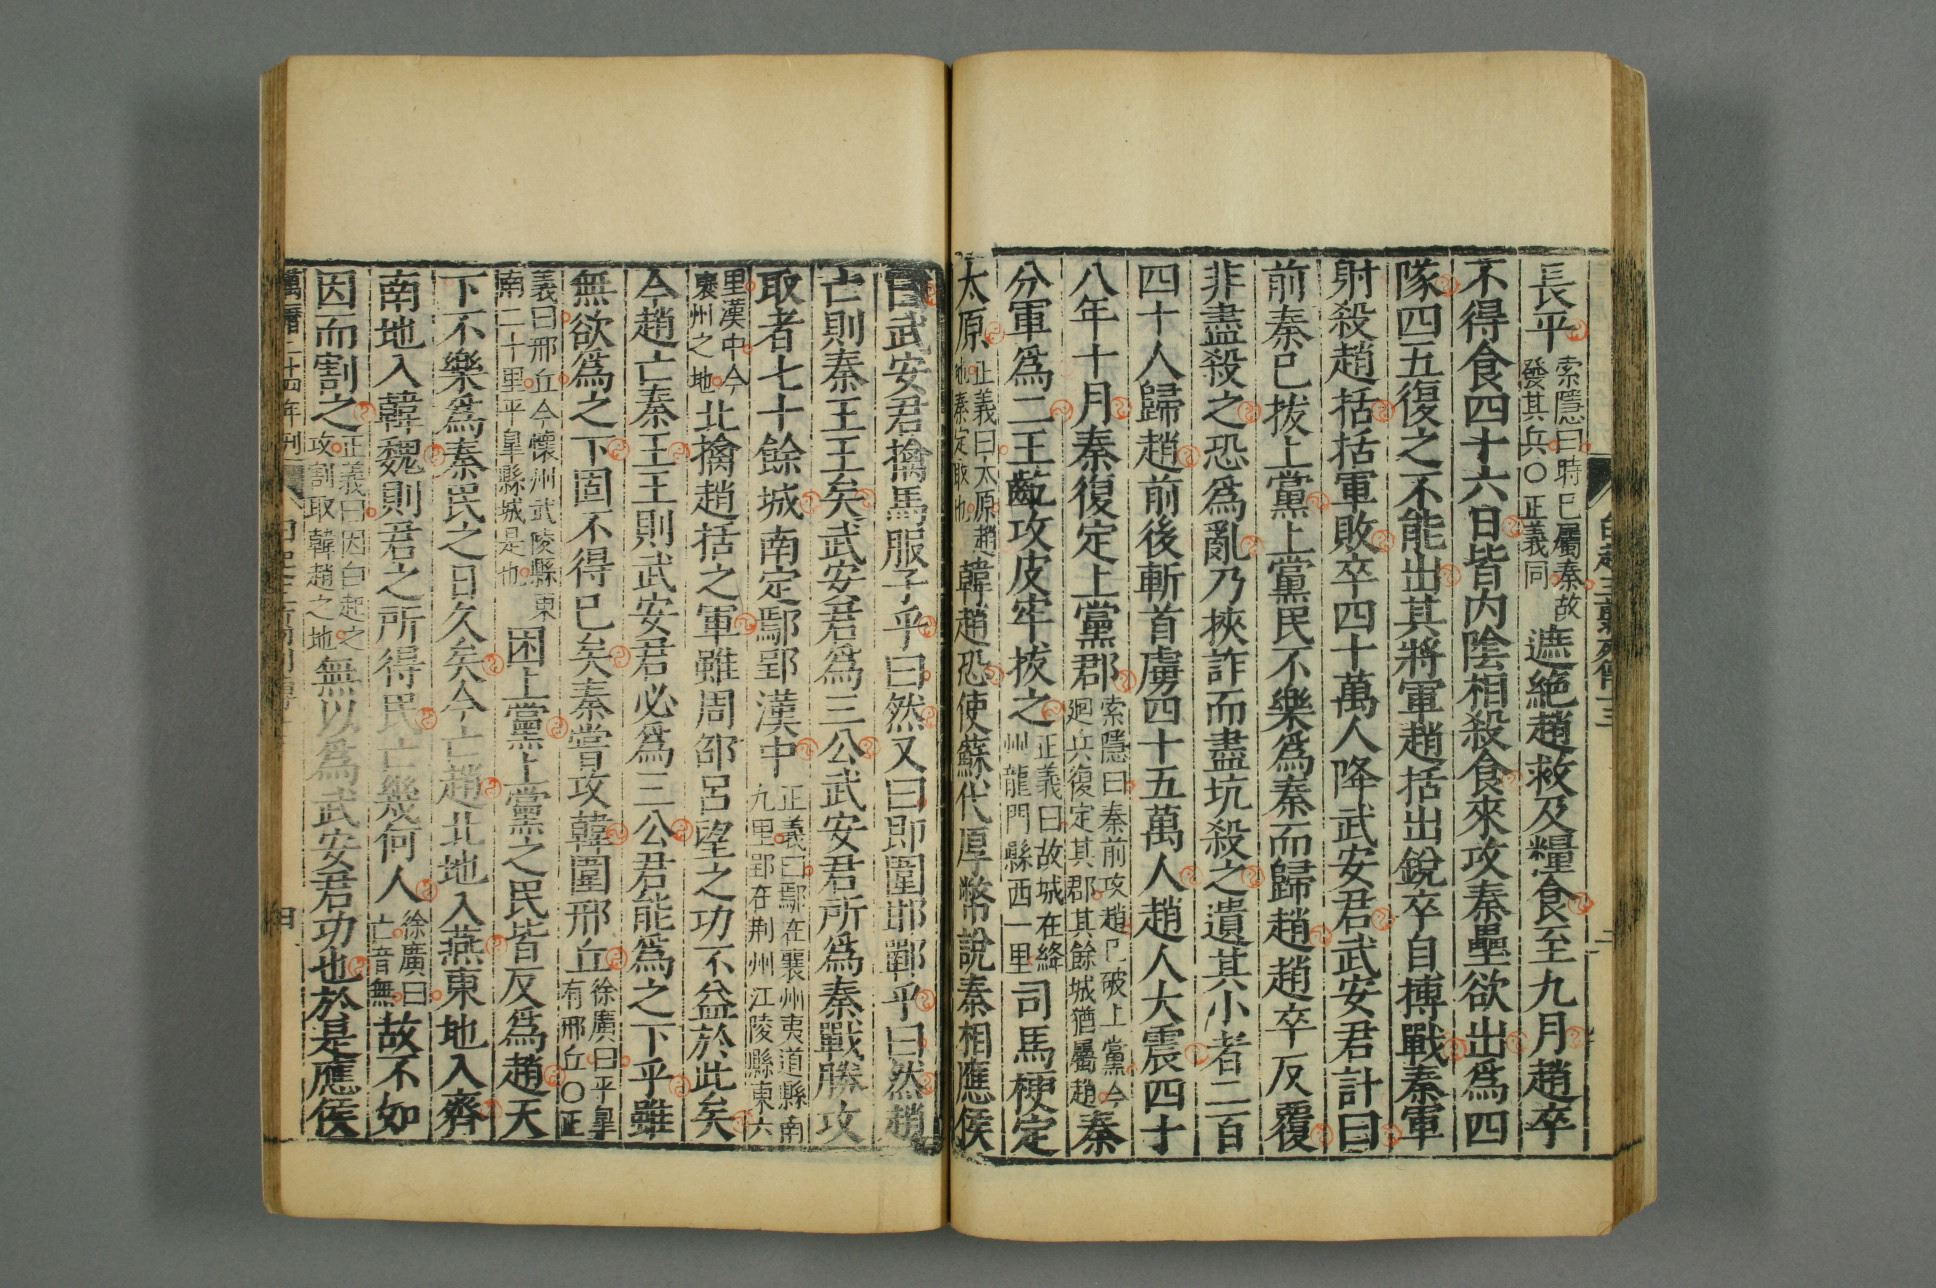 長平索隱曰時已屬秦故發其兵○正義同遮絶趙救及糧食至九月趙卒
不得食四十六日皆內陰相殺食來攻秦壘欲出爲四
隊四五復之不能出其將軍趙括出銳卒自搏戰秦軍
射殺趙括括軍敗卒四十萬人降武安君武安君計曰
前秦已拔上黨上黨民不樂爲秦而歸趙趙卒反覆
非盡殺之恐爲亂乃挾詐而盡坑殺之遺其小者二百
四十人歸趙前後斬首虜四十五萬人趙人大震四十
八年十月秦復定上黨郡索隱曰秦前攻趙已破上黨今廻兵復定其郡其餘城猶屬趙秦
分軍爲二王齕攻皮牢拔之正義曰故城在絳州龍門縣西一里司馬梗定
太原正義曰太原趙地秦定取也韓趙恐使蘇代厚幣說秦相應侯
曰武安君擒馬服子乎曰然又曰即圍邯鄲乎曰然趙
亡則秦王王矣武安君爲三公武安君所爲秦戰勝攻
取者七十餘城南定鄢郢漢中正義曰鄢在襄州夷道縣南九里郢在荆州江陵縣東六
里漢中今襄州之地北擒趙括之軍雖周邵呂望之功不益於此矣
今趙亡秦王王則武安君必爲三公君能爲之下乎雖
無欲爲之下固不得已矣秦嘗攻韓圍邢丘徐廣曰平皐有邢丘○正
義曰邢丘今懷州武陵縣東南二十里平皐縣城是也困上黨上黨之民皆反爲趙天
下不樂爲秦民之日久矣今亡趙北地入燕東地入齊
南地入韓魏則君之所得民亡幾何人徐廣曰亡音無故不如
因而割之正義曰因白起之攻割取韓趙之地無以爲武安君功也於是應侯
白起王翦列傳十三
萬曆二十四年刊
四